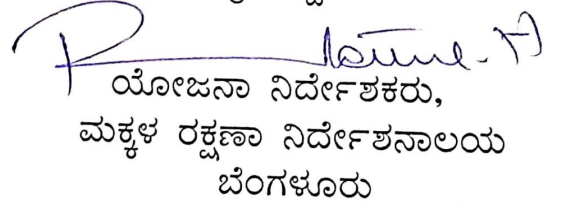 ಯೋಜನಾ ನಿರ್ದೇಶಕರು,
ಮಕ್ಕಳ ರಕ್ಷಣಾ ನಿರ್ದೇಶನಾಲಯ
ಬೆಂಗಳೂರು